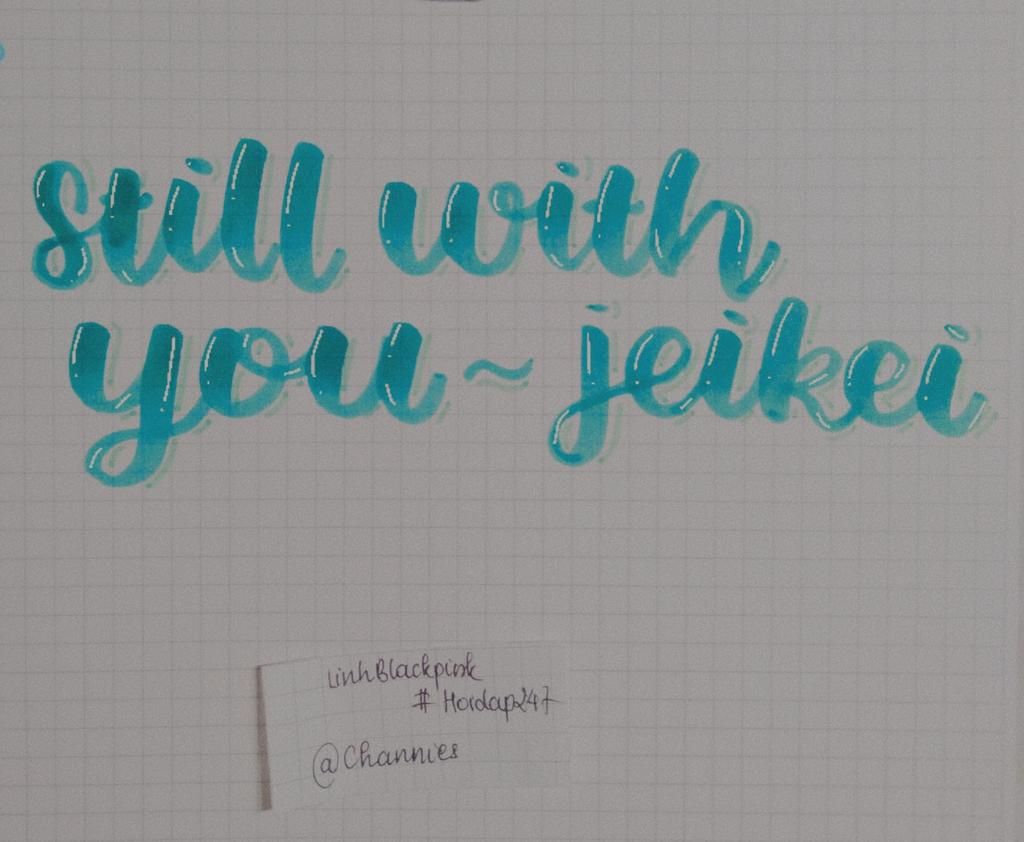 still with
you ~ jeikei
LinhBlackpink
# Hoidap247
@Channies